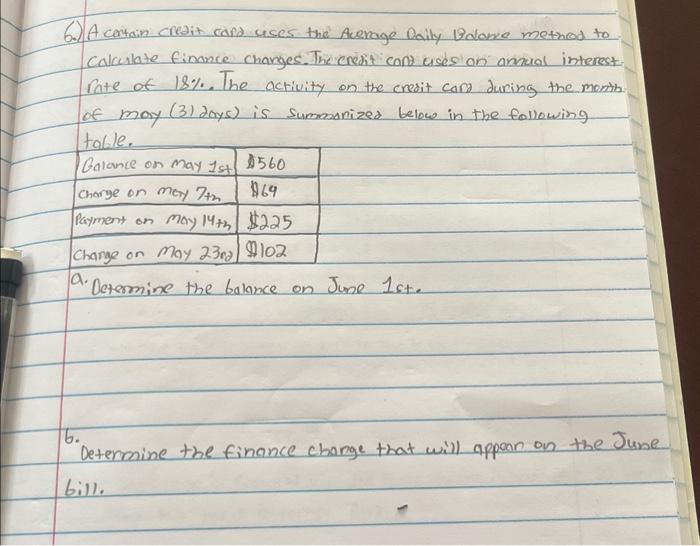 6.) A certain credit card uses the Average Daily Balance method to
calculate finance charges. The credit card uses an annual interest
rate of 18%. The activity on the credit card during the month
of may (31 days) is summarized below in the following
table.
Balance on may 1st $560
charge on may 7th $69
Payment on may 14th $225
Charge on may 23rd $102
a. Determine the balance on June 1st.
b. Determine the finance charge that will appear on the June
bill.